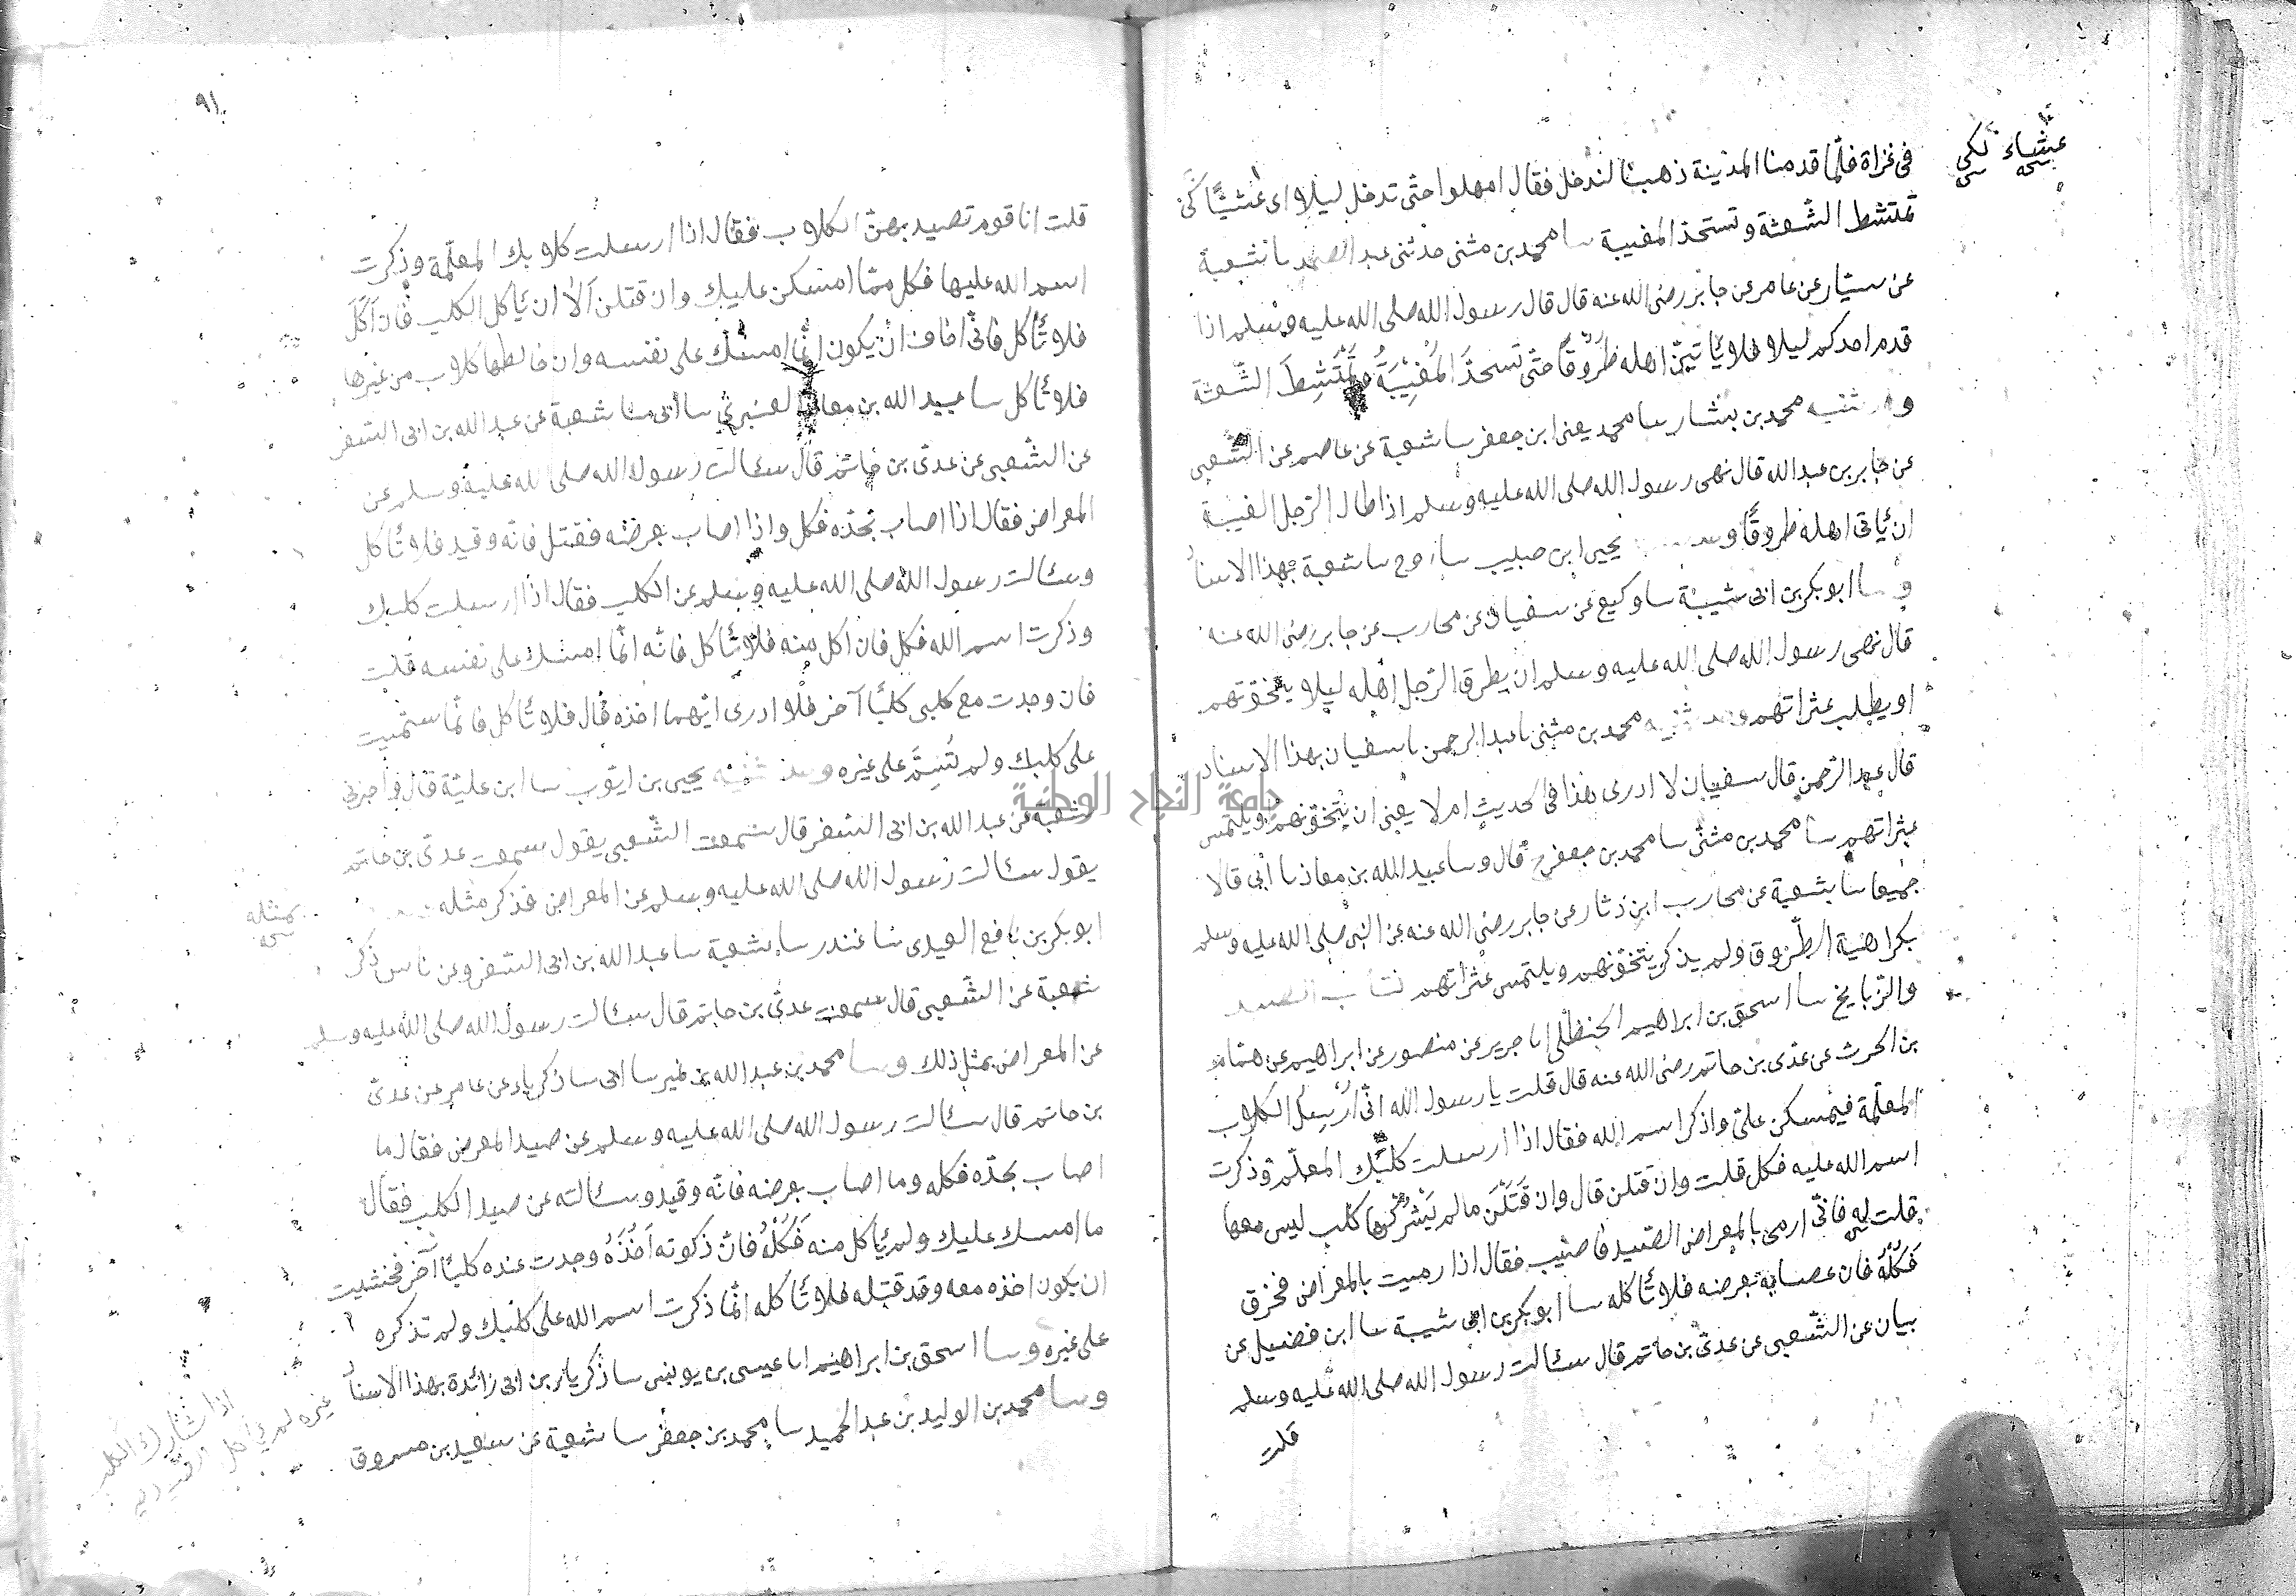 عشاء لكى
في غزاة فلما قدمنا المدينة ذهبنا لندخل فقال امهلوا حتى تدخل ليلا اى عشيًا كَى
تمتشط الشعثة وتستحد المغيبة سا محمد بن مثنى حدثنى عبد الصمد نا شعبة
عن سيّار عن عامر عن جابر رضى الله عنه قال قال رسول الله صلى الله عليه وسلم اذا
قدم احدكم ليلا فلا ياتينّ اهله طُرُوقًا حتى تَستحدَّ المُغِيبَةُ وتَمْتَشِطَ الشَّعثة
وحدثنيه محمد بن بشار سا محمد يعنى ابن جعفر سا شعبة عن عاصم عن الشعبى
عن جابر بن عبد الله قال نهى رسول الله صلى الله عليه وسلم اذا طال الرّجل الغيبة
ان يأتى اهله طروقًا يحيى ابن حبيب سا روح سا شعبة بهذا الاسناد
وسا ابو بكر بن ابى شيبة سا وكيع عن سفيان عن محارب عن جابر رضى الله عنه
قال نهى رسول الله صلى الله عليه وسلم ان يطرق الرّجل اهله ليلا يتخوّنهم
او يطلب عثراتهم وحدثنيه محمد بن مثنى نا عبد الرحمن نا سفيان بهذا الاسناد
قال عبد الرّحمن قال سفيان لا ادرى هذا فى الحديث ام لا يعنى ان يتخوّنهم ويلتمس
عثراتهم سا محمد بن مثنّى سا محمد بن جعفر ح قال وسا عبيد الله بن معاذ نا أبى قالا
جميعا سا شعبة عن محارب ابن دثار عن جابر رضى الله عنه عن النبى صلى الله عليه وسلم
بكراهية الطّروق ولم يذكر يتخوّنهم ويلتمس عثراتهم كتاب الصيد
والذّبايح سا اسحق بن ابراهيم الحنظلى انا جرير عن منصور عن ابراهيم عن همّام
بن الحرث عن عدى بن حاتم رضى الله عنه قال قلت يا رسول الله انّى اُرْسِلُ الكلاب
المعلّمة فيمسكن علىّ واذكر اسم الله فقال اذا ارسلت كلبك المعلّم وذكرت
اسم الله عليه فكل قلت وان قتلن قال وان قَتَلْنَ ما لم يَشْرَكْها كلب ليس معها
قلت له فانّى ارمى بالمعراض الصّيد فاصيب فقال اذا رميت بالمعراض فخزق
فَكُلْهُ فان اصابه بعرضه فلا تأكله سا ابو بكر بن ابى شيبة سا ابن فضيل عن
بيان عن الشّعبى عن عدىّ بن حاتم قال سئالت رسول الله صلى الله عليه وسلم
قلت
٩١
قلت انا قوم نصيد بهذه الكلاب فقال اذا ارسلت كلابك المعلّمة وذكرت
اسم الله عليها فكل ممّا امسكن عليك وان قتلن اَلّا ان يأكل الكلب فان اَكَلَ
فلا تأكل فانّى اخاف ان يكون انّما امسك على نفسه وان خالطها كلاب من غيرها
فلا تأكل سا عبيد الله بن معاذ العنبرىّ سا ابى سا شعبة عن عبد الله بن ابى السّفر
عن الشّعبى عن عدىّ بن حاتم قال سئالت رسول الله صلى الله عليه وسلم عن
المعراض فقال اذا اصاب بحدّه فكل واذا اصاب بعرضه فقتل فانّه وقيد فلا تأكل
وسئالت رسول الله صلى الله عليه وسلم عن الكلب فقال اذا ارسلت كلبك
وذكرت اسم الله فكل فان اكل منه فلا تأكل فانّه انّما امسك على نفسه قلت
فان وجدت مع كلبى كلبًا آخر فلا ادرى ايّهما اخذه قال فلا تأكل فانّما سمّيت
على كلبك ولم تُسَمِّ على غيره وحدثنيه يحيى بن ايّوب سا ابن عليّة قال واخبرنى
شعبة عن عبد الله بن ابى السّفر قال سمعت الشّعبى يقول سمعت عدىّ بن حاتم
يقول سئالت رسول الله صلى الله عليه وسلم عن المعراض فذكر مثله
بمثله
ابو بكر بن نافع العبدى سا غندر سا شعبة سا عبد الله بن ابى السّفر وعن ناس ذكر
شعبة عن الشّعبى قال سمعت عدىّ بن حاتم قال سئالت رسول الله صلى الله عليه وسلم
عن المعراض بمثل ذلك وسا محمد بن عبد الله بن نمير سا ابى سا زكرياء عن عامر عن عدىّ
بن حاتم قال سئالت رسول الله صلى الله عليه وسلم عن صيد المعراض فقال ما
اصاب بحدّه فكله وما اصاب بعرضه فانّه وقيد وسئالته عن صيد الكلب فقال
ما امسك عليك ولم يأكل منه فَكُلْهُ فانّ ذكوته اَخْذُهُ وجدت عنده كلبًا آخر فخشيت
ان يكون اخذه معه وقد قتله فلا تأكله انّما ذكرت اسم الله على كلبك ولم تذكره
على غيره وسا اسحق بن ابراهيم انا عيسى بن يونس سا زكريا بن ابى زائدة بهذا الاسناد
وسا محمد بن الوليد بن عبد الحميد سا محمد بن جعفر سا شعبة عن سعيد بن مسروق
اذا شارك الكلب
غيره لم يأكل
جامعة النجاح الوطنية